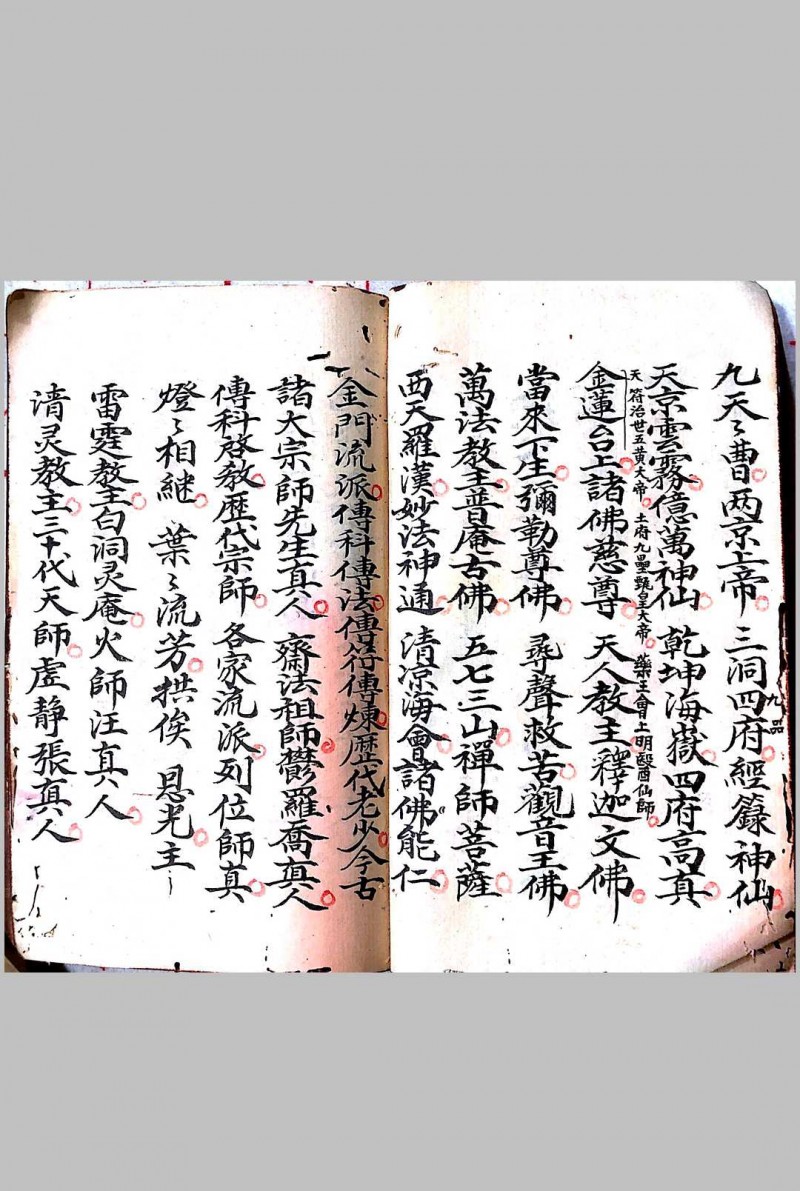 九天〻曹两京上帝 三洞四府經籙神仙
九品
天京雲霧億萬神仙 乾坤海嶽四府高真
天符治世五黃大帝 土府九壘甄皇大帝 藥王會上明醫仙師
金蓮台上諸佛慈尊 天人教主釋迦文佛
當來下生彌勒尊佛 尋聲救苦觀音王佛
萬法教主普庵古佛 五七三山禪師菩薩
西天羅漢妙法神通 清凉海會諸佛能仁
金門流派傳科傳法傳符傳煉歷代老少今古
諸大宗師先生真人 齋法祖師鬱羅喬真人
傳科啓教歷代宗師 各家流派列位師真
燈〻相継 葉〻流芳拱俟 恩光主
雷霆教主白洞灵庵火師汪真人
清灵教主三十代天師虛静張真人